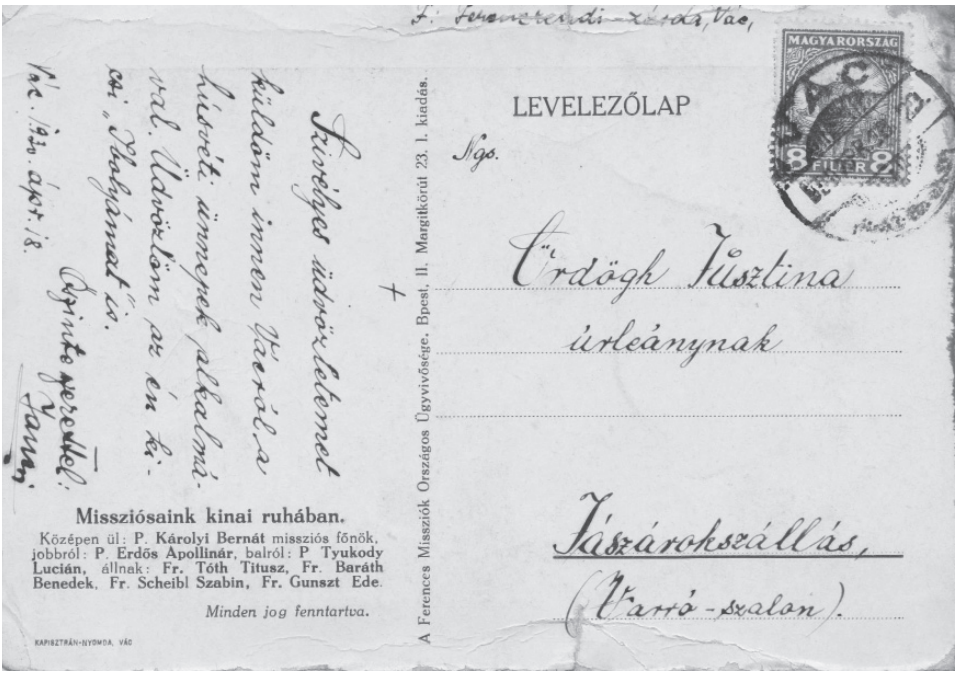 F: Ferencrendi-zárda, Vác,
MAGYARORSZÁG
8 FILLÉR 8
VÁC
LEVELEZŐLAP
Ngs.
Ördögh Jusztina
úrleánynak
Jászárokszállás,
(Varró-szalon).
A Ferences Missziók Országos Ügyvivősége, Bpest, II, Margitkörút 23. I. kiadás.
Szivélyes üdvözletemet
küldöm innen Vácról a
húsvéti ünnepek alkalmá-
val. Üdvözlöm az én ki-
csi "Ibolyámat" is.
Őszinte szerettel:
Jancsi
Vác. 1930. ápr. 18.
Missziósaink kinai ruhában.
Középen ül: P. Károlyi Bernát missziós főnök,
jobbról: P. Erdős Apollinár, balról: P Tyukody
Lucián, állnak: Fr. Tóth Titusz, Fr. Baráth
Benedek, Fr. Scheibl Szabin, Fr. Gunszt Ede.
Minden jog fenntartva.
KAPISZTRÁN-NYOMDA, VÁC